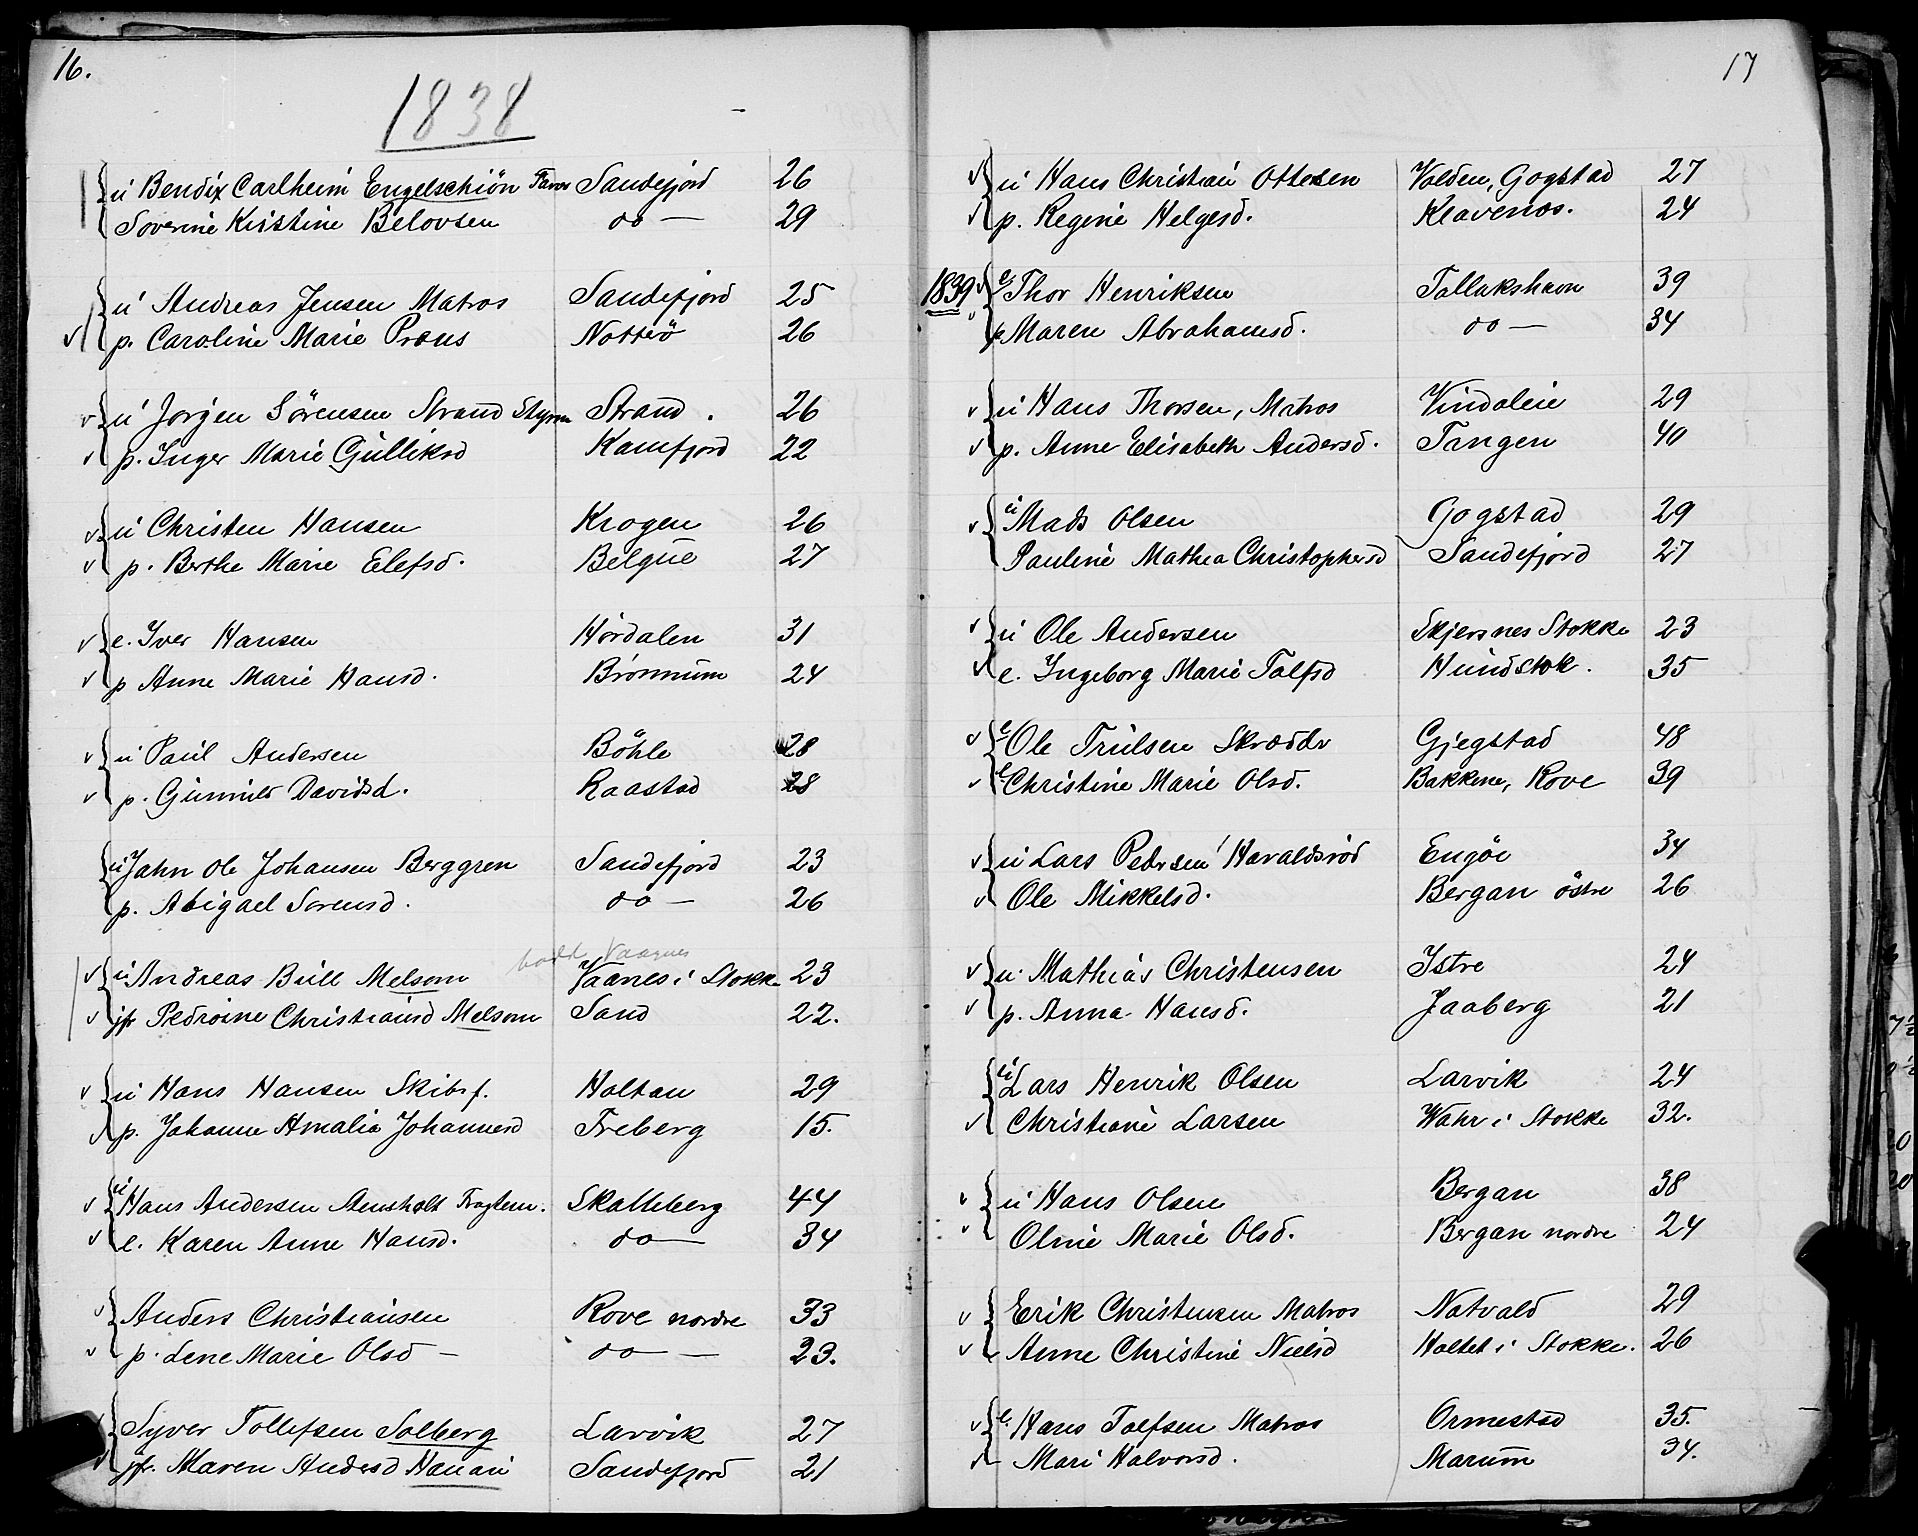 16.
1838
u Bendix Carlheim Engelschiön Sandefjord 26
Soverine Kristine Belovsen do — 29
u Andreas Jensen Matros Sandefjord 25
p. Caroline Marie Præus Notterö 26
u Jørgen Sörensen Strand Styrm Strand. 26
p. Inger Marie Gulliksd Kamfjord 22
u Christen Hansen Krogen 26
p. Berthe Marie Elefsd. Belgue 27
e. Iver Hansen Hørdalen 31
p Anne Marie Hansd. Brønnum 24
u Paul Andersen Böhle 28
p. Gunnild Davidsd. Raastad 28
u Jahn Ole Johansen Berggren Sandefjord 23
p. Abigael Sorensd. do — 26
hodt Vaagnes
u Andreas Bull Melsom Vaanes i Stokke 23
jfr Pedroine Christiansd Melsom Sand 22.
u Hans Hansen Skibsf. Holtan 29
p. Johanne Amalia Johannesd Freberg 15.
u Hans Andersen Stensholt Skalleberg 44
e. Karen Anne Hansd. do — 34
Anders Christiansen Rove nordre 33
p. Lene Marie Olsd — do — 23.
Syver Tollefsen Solberg Larvik 27
jfr. Maren Andersd Hanan Sandefjord 21
17
u Hans Christian Ottesen Volden, Gogstad 27
p. Regine Helgesd. Klavenæs. 24
1839 e Thor Henriksen Tollakshavn 39
p Maren Abrahamsd. do — 34
u Hans Thorsen, Matros Vindaleie 29
p. Anne Elisabeth Andersd. Tangen 40
u Mads Olsen Gogstad 29
Pauline Mathea Christophersd Sandefjord 27
u Ole Andersen Skjersnes Stokke 23
e. Ingeborg Marie Tolfsd Hundstok. 35
e Ole Trulsen Skrædder Gjegstad 48
e Christine Marie Olsd. Bakkene, Rove 39
u Lars Pedersen Haraldsrød Engöe 34
Ole Mikkelsd. Bergan östre 26
u. Mathias Christensen Istre 24
p. Anna Hansd. Jaaberg 21
u Lars Henrik Olsen Larvik 24
Christiane Larsen Wahr i Stokke 32.
u Hans Olsen Bergan 38
Oline Marie Olsd. Bergan nordre 24
Erik Christensen Matros Natvald 29
Anne Christine Nielsd Holtet i Stokke. 26
e. Hans Tolfsen Matros Ormestad 35.
Mari Halvorsd. Marum 34.